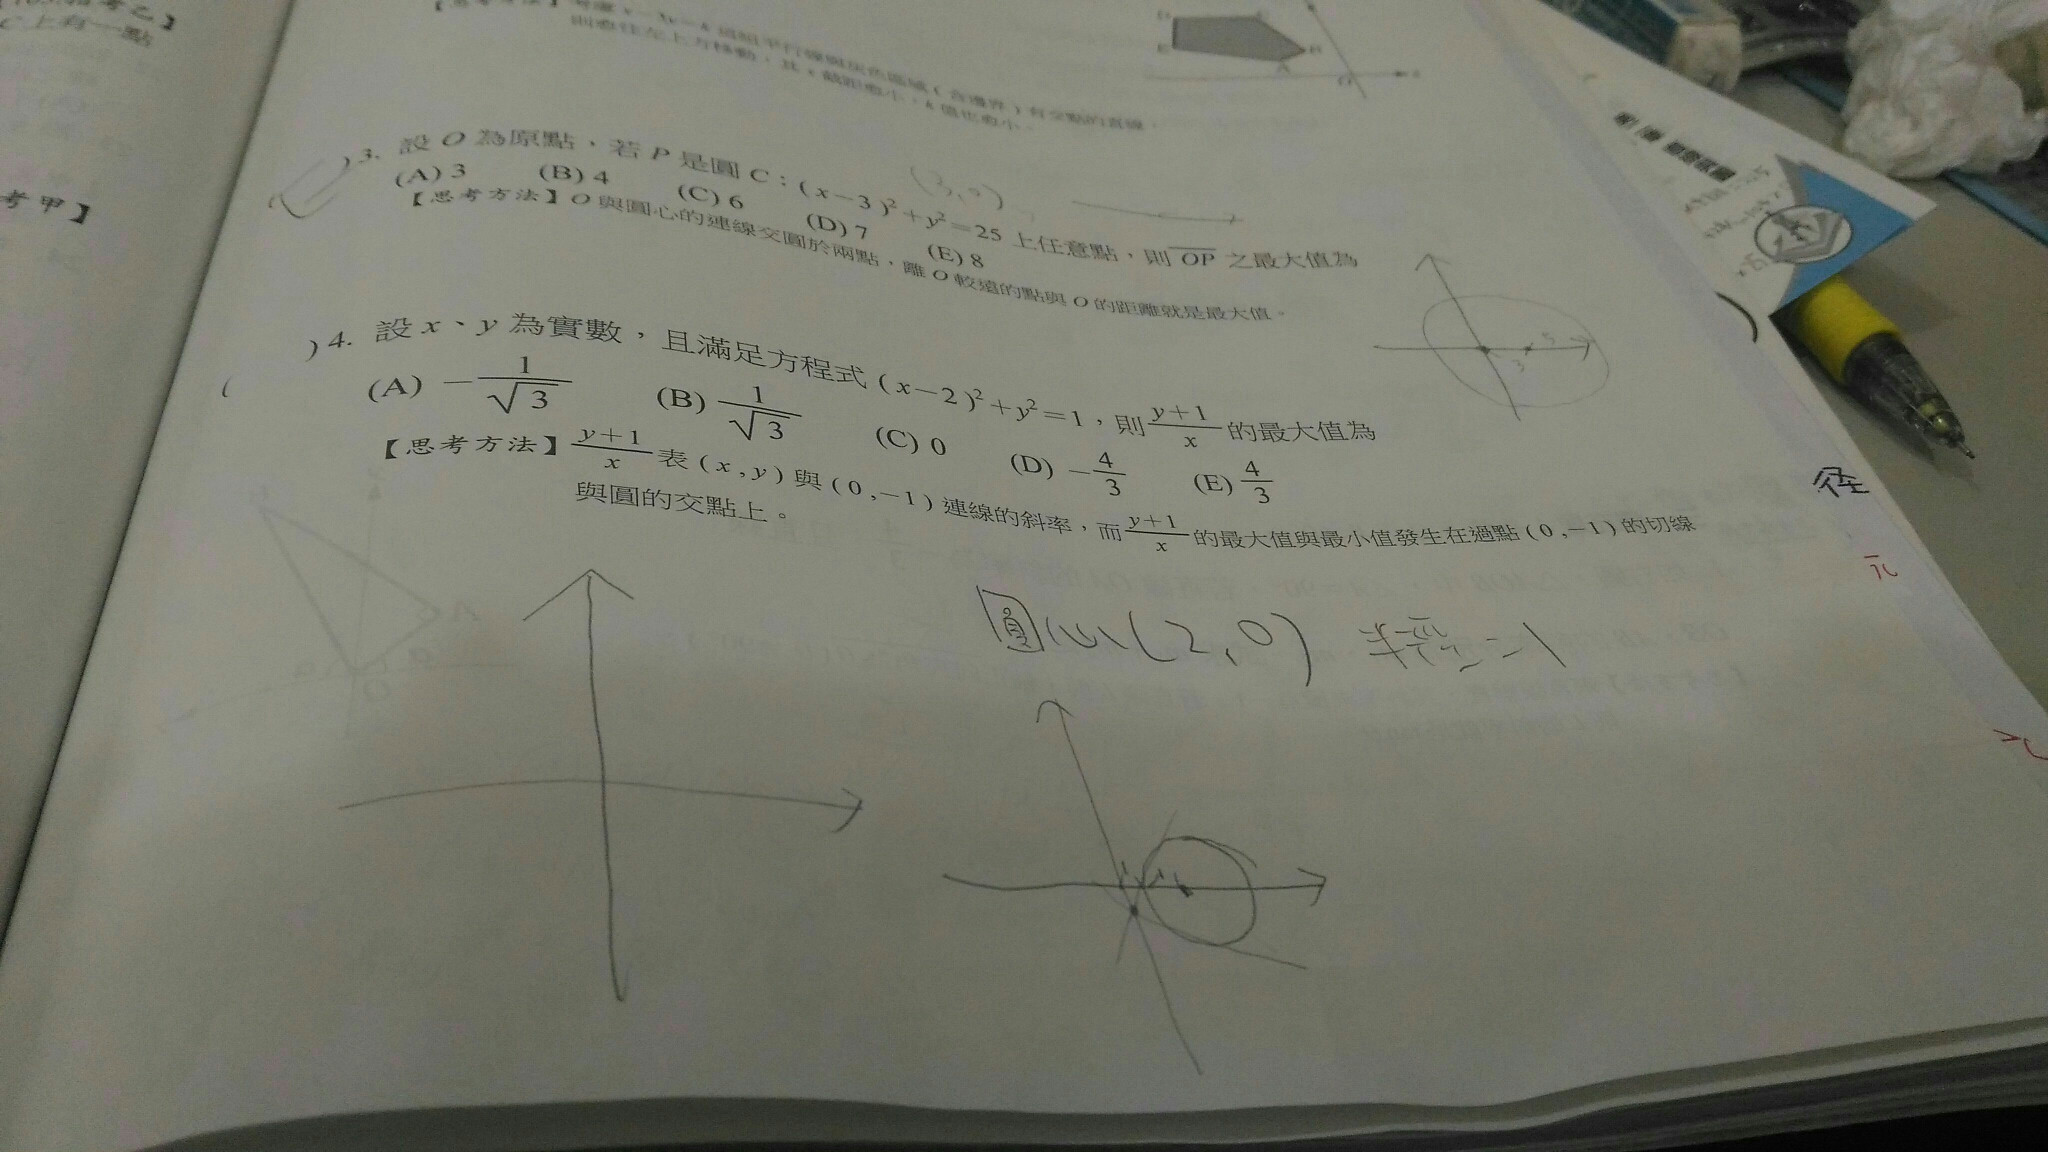 考乙】
C上有一點
考甲】
則愈往左上方移動，其x截距愈小，k值也愈小。
)3. 設 O 為原點，若 P 是圓 C：(x－3)²＋y²＝25 上任意點，則 OP 之最大值為
(A) 3 (B) 4 (C) 6 (D) 7 (E) 8
【思考方法】O 與圓心的連線交圓於兩點，離 O 較遠的點與 O 的距離就是最大值。
(3,0)
3 5
( )4. 設 x、y 為實數，且滿足方程式 (x－2)²＋y²＝1，則 (y＋1)/x 的最大值為
(A) －1/√3 (B) 1/√3 (C) 0 (D) －4/3 (E) 4/3
【思考方法】(y＋1)/x 表 (x , y) 與 (0 ,－1) 連線的斜率，而 (y＋1)/x 的最大值與最小值發生在過點 (0 ,－1) 的切線
與圓的交點上。
径
圓心(2,0) 半徑=1